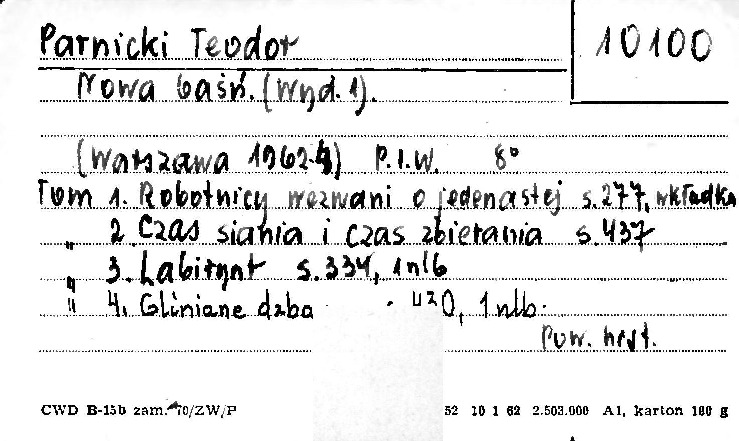 Parnicki Teodor
10100
Nowa baśń. (Wyd. 1).
(Warszawa 1962-) P.I.W. 8°
Tom 1. Robotnicy wezwani o jedenastej s. 277, wkładka
„ 2. Czas siania i czas zbierania s. 437
„ 3. Labirynt s. 334, 1 nlb
„ 4. Gliniane dzba 420, 1 nlb.
Pow. hist.
CWD B-15b zam. 70/ZW/P 52 10 1 62 2.503.000 A1, karton 180 g